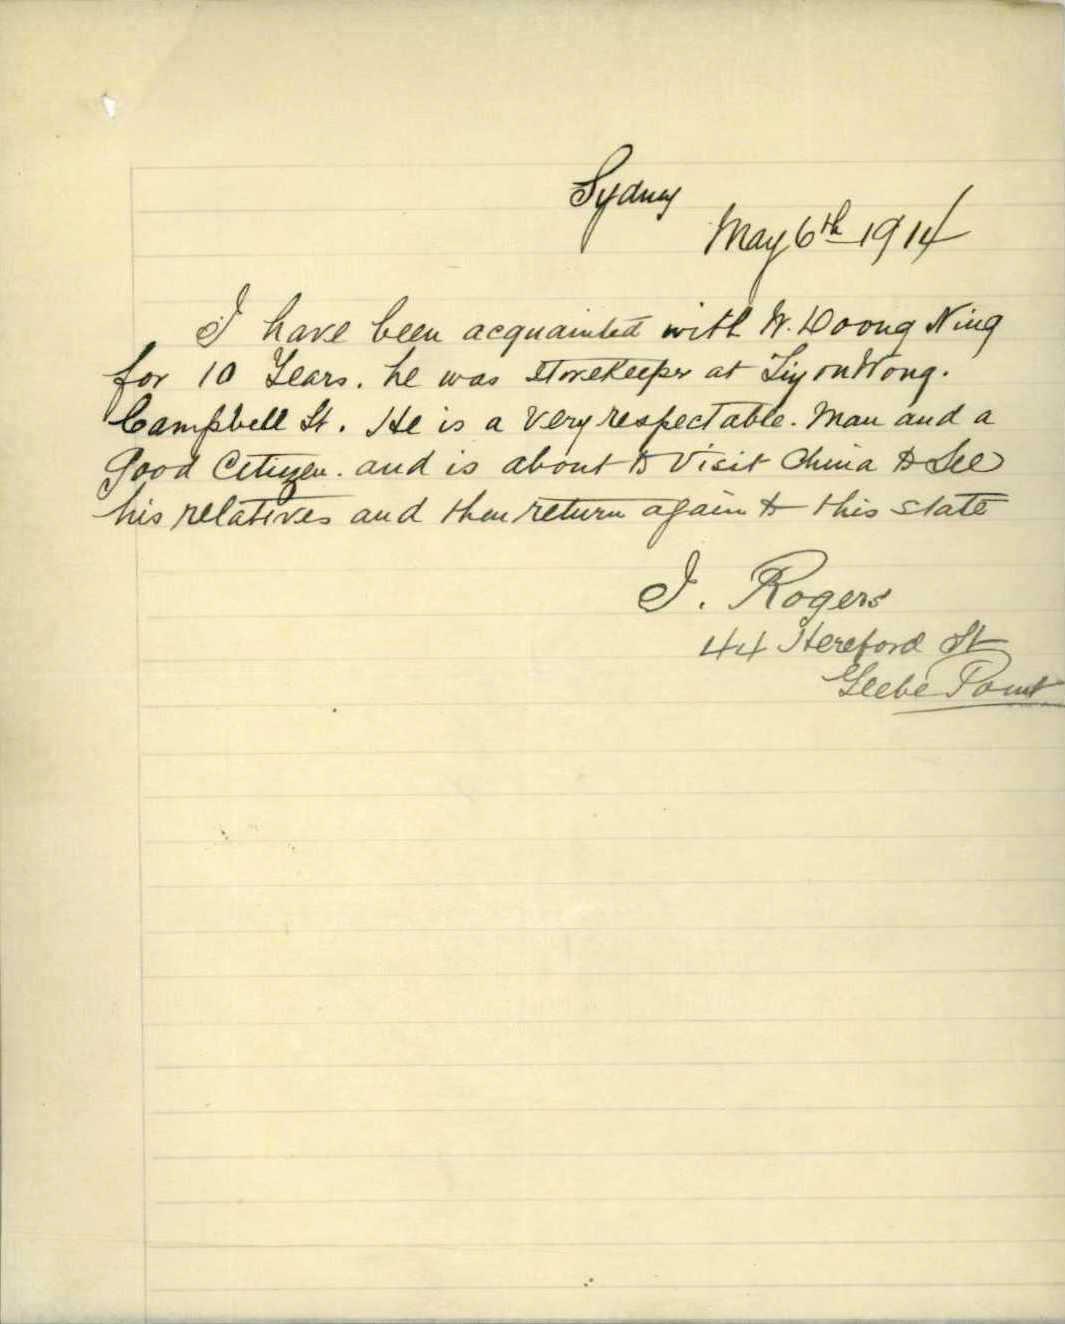 Sydney
May 6th 1914
I have been acquainted with W. Doong Ning
for 10 Years. he was storekeeper at Tiy on Wong.
Campbell St. He is a very respectable. Man and a
Good Citizen. and is about to Visit China to See
his relatives and then return again to this state
J. Rogers
44 Hereford St
Glebe Point